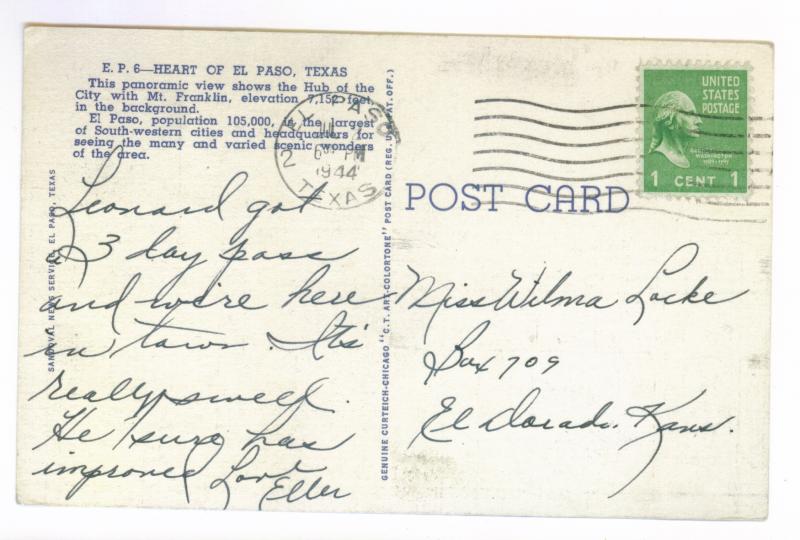 E. P. 6—HEART OF EL PASO, TEXAS
This panoramic view shows the Hub of the
City with Mt. Franklin, elevation 7,152 feet
in the background.
El Paso, population 105,000, is the largest
of South-western cities and headquarters for
seeing the many and varied scenic wonders
of the area.
SANDOVAL NEWS SERVICE, EL PASO, TEXAS
Leonard got
a 3 day pass
and we're here
in town. It's
really swell.
He sure has
improved Love
Eller
GENUINE CURTEICH-CHICAGO "C.T. ART-COLORTONE" POST CARD (REG. U.S. PAT. OFF.)
EL PASO
2
PM
1944
TEXAS
UNITED
STATES
POSTAGE
WASHINGTON
1 CENT 1
POST CARD
Miss Wilma Locke
Box 709
El Dorado. Kans.